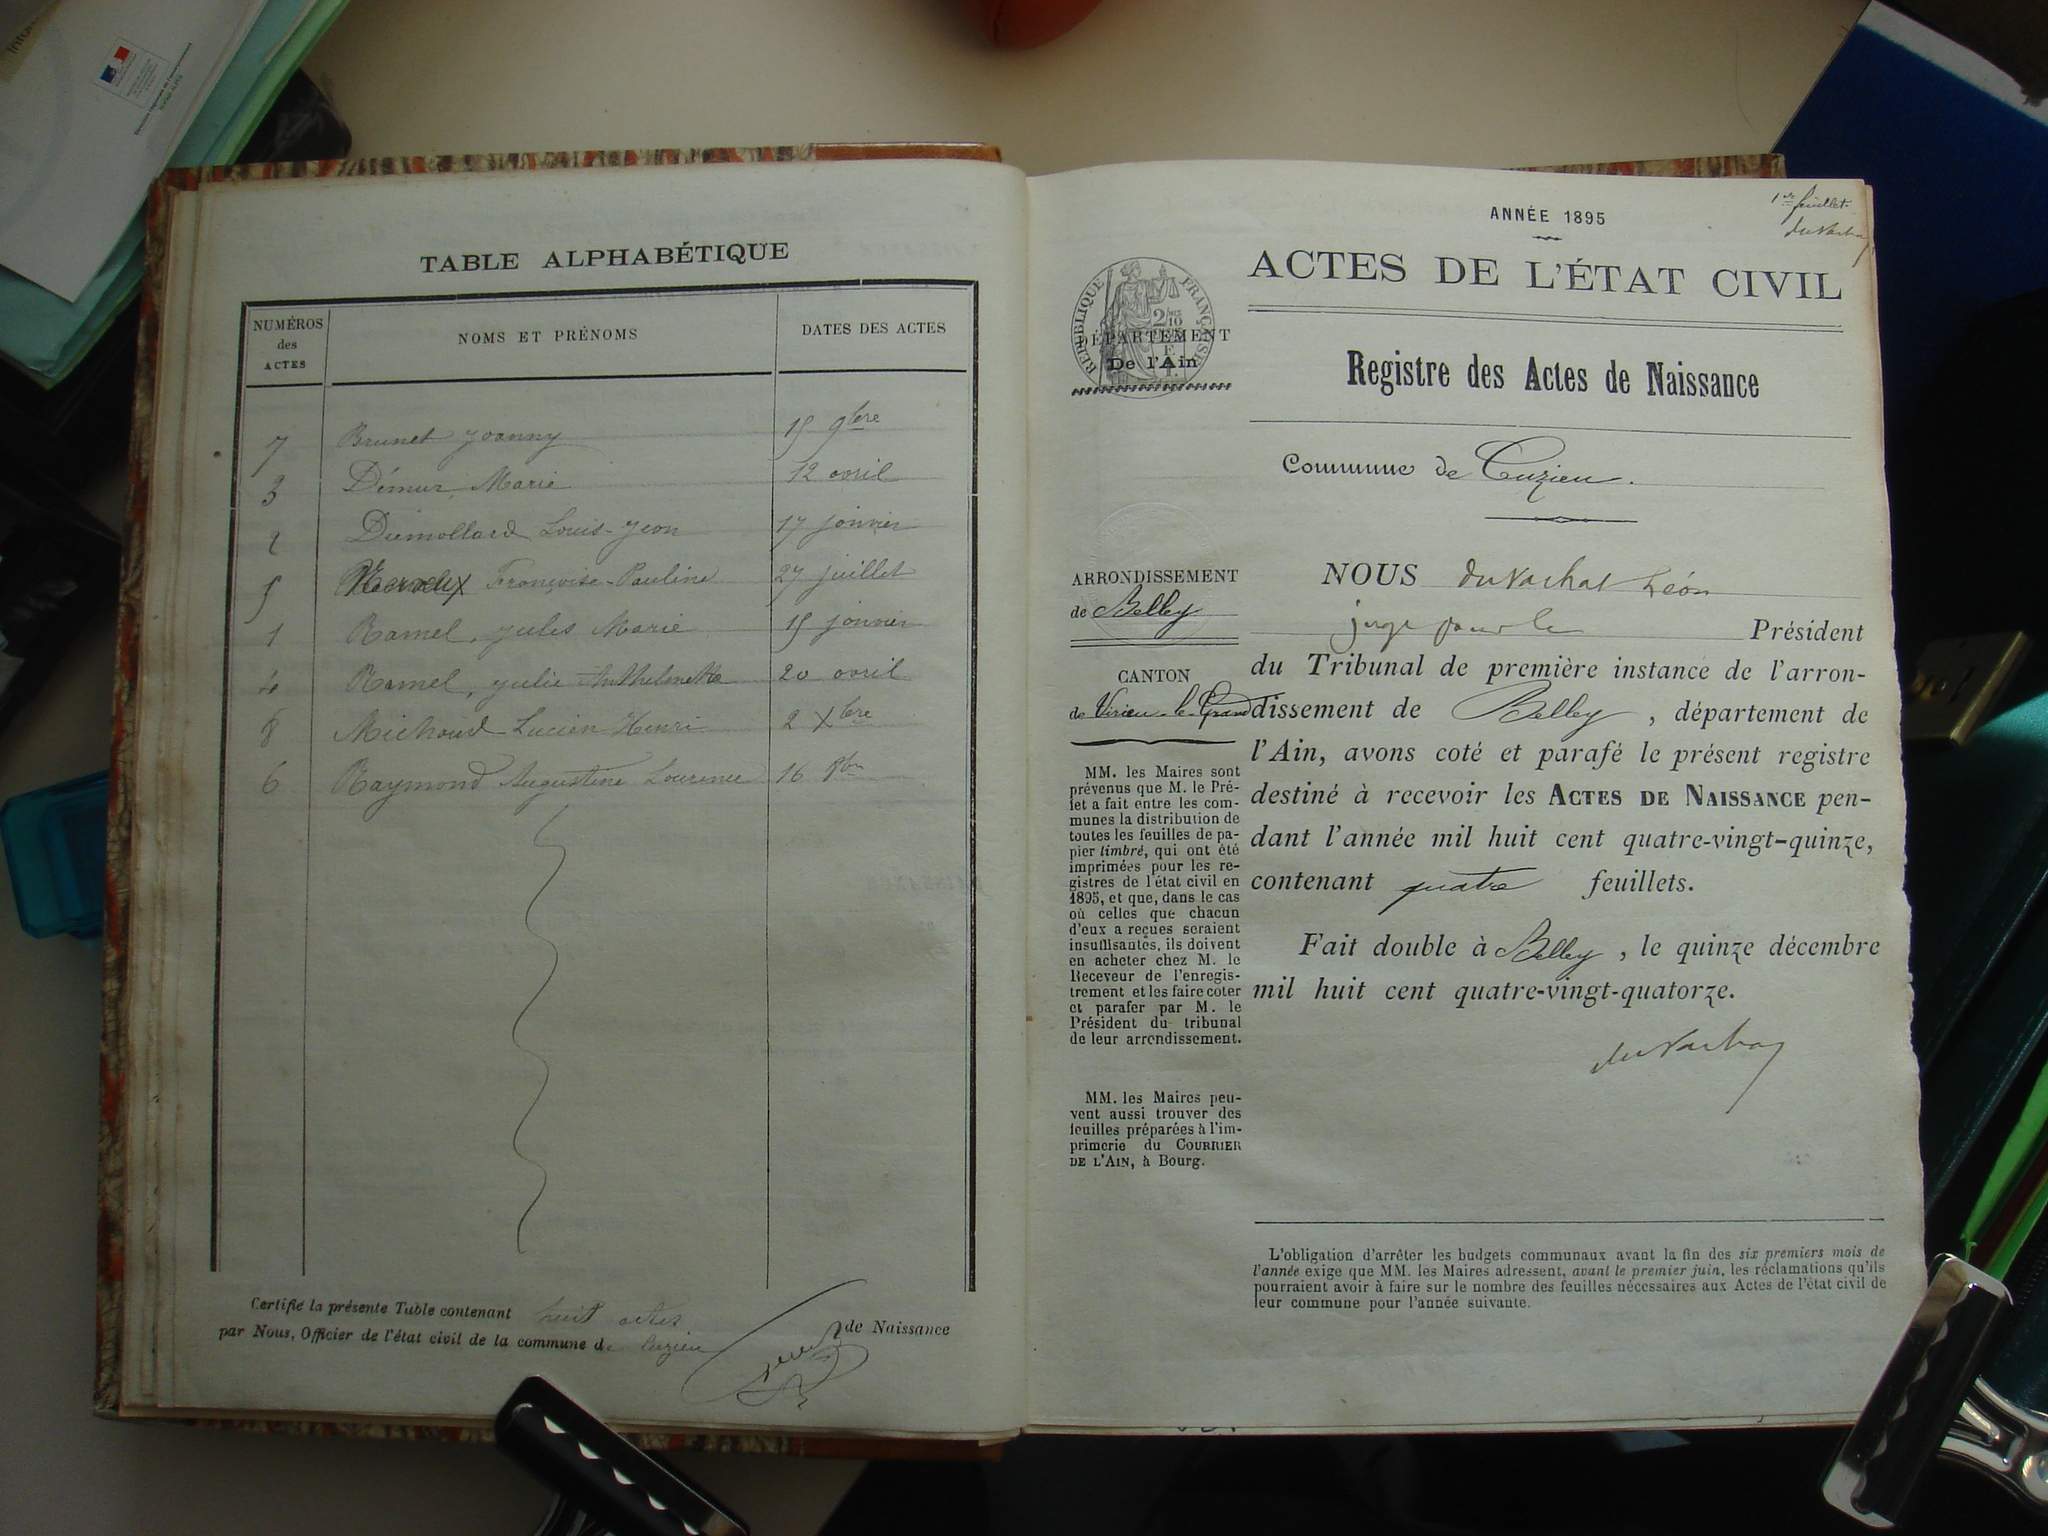 TABLE ALPHABÉTIQUE
NUMÉROS
des
ACTES
NOMS ET PRÉNOMS
DATES DES ACTES
7 Brunet Joanny 15 9bre
3 Démur, Marie 12 avril
2 Dumollard Louis-Jean 17 janvier
5 Françoise-Pauline 27 juillet
1 Ramel, Jules Marie 15 janvier
4 Ramel, Julie Anthelmette 20 avril
8 Michaud Lucien Henri 2 Xbre
6 Raymond Augustine Laurence 16 8bre
Certifié la présente Table contenant huit actes
de Naissance
par Nous, Officier de l'état civil de la commune de Cuzieu
1er feuillet.
duvachat
ANNÉE 1895
ACTES DE L'ÉTAT CIVIL
RÉPUBLIQUE FRANÇAISE
DÉPARTEMENT
De l'Ain
Registre des Actes de Naissance
Commune de Cuzieu.
ARRONDISSEMENT
de Belley
CANTON
de Virieu-le-Grand
MM. les Maires sont
prévenus que M. le Pré-
fet a fait entre les com-
munes la distribution de
toutes les feuilles de pa-
pier timbré, qui ont été
imprimées pour les re-
gistres de l'état civil en
1895, et que, dans le cas
où celles que chacun
d'eux a reçues seraient
insuffisantes, ils doivent
en acheter chez M. le
Receveur de l'enregis-
trement et les faire coter
et parafer par M. le
Président du tribunal
de leur arrondissement.
MM. les Maires peu-
vent aussi trouver des
feuilles préparées à l'im-
primerie du COURRIER
DE L'AIN, à Bourg.
NOUS duvachat Léon
juge pour le Président
du Tribunal de première instance de l'arron-
dissement de Belley, département de
l'Ain, avons coté et parafé le présent registre
destiné à recevoir les ACTES DE NAISSANCE pen-
dant l'année mil huit cent quatre-vingt-quinze,
contenant quatre feuillets.
Fait double à Belley, le quinze décembre
mil huit cent quatre-vingt-quatorze.
duvachat
L'obligation d'arrêter les budgets communaux avant la fin des six premiers mois de
l'année exige que MM. les Maires adressent, avant le premier juin, les réclamations qu'ils
pourraient avoir à faire sur le nombre des feuilles nécessaires aux Actes de l'état civil de
leur commune pour l'année suivante.